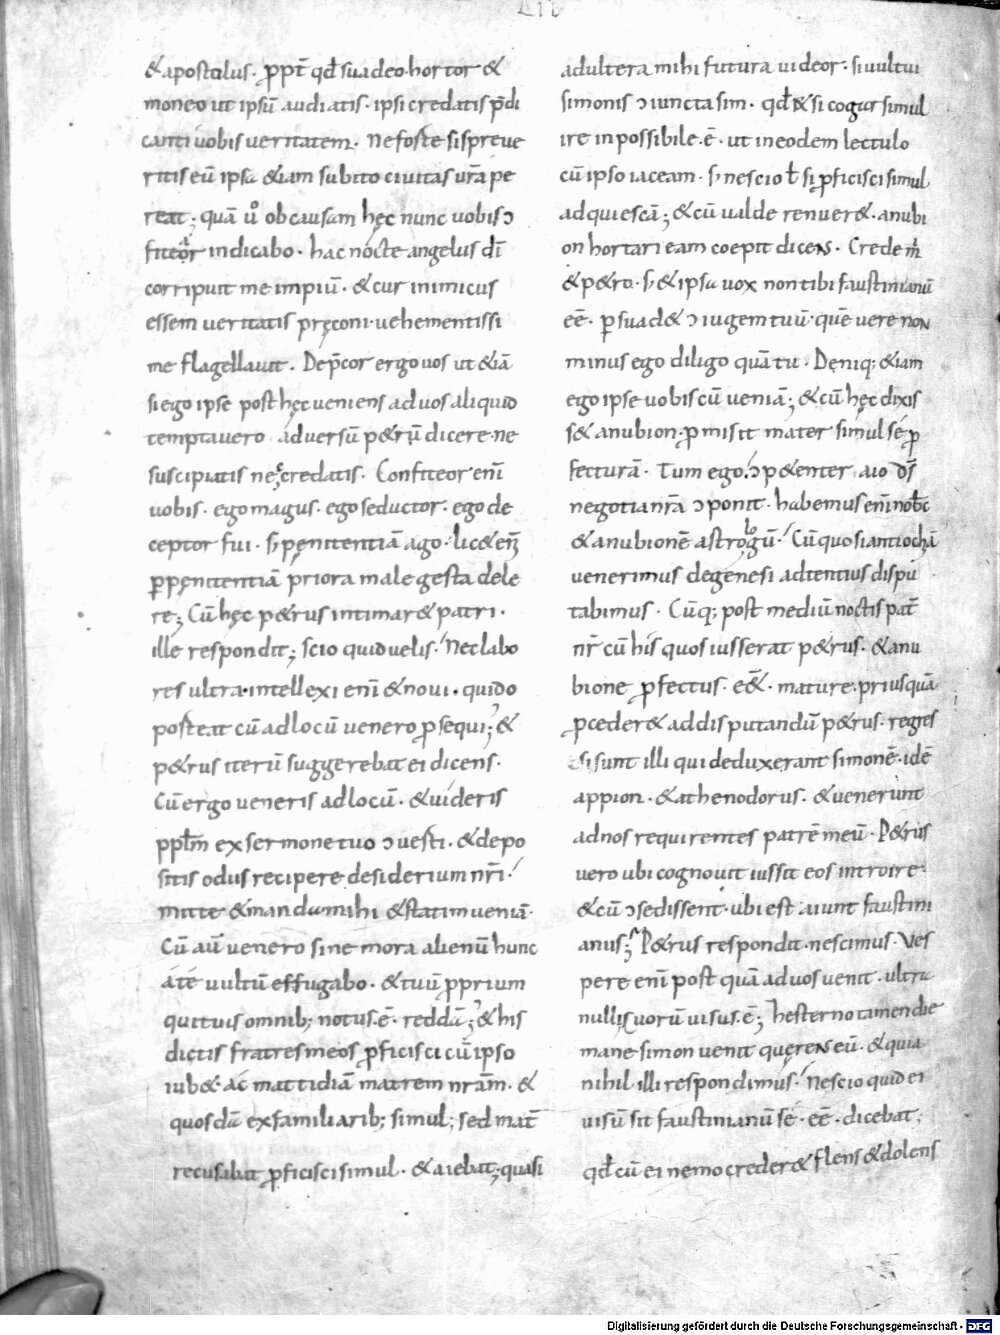 LII
& apostolus. ꝓpt̄ qd̄ suadeo. hortor &
moneo ut ipsū audiatis. ipsi credatis p̄di
canti uobis ueritatem. Ne forte si spreue
ritis eū ipsa &iam subito ciuitas ur̄a pe
reat; quā u͛o ob causam hęc nunc uobis ɔ
fiteor indicabo. hac nocte angelus dī
corripuit me impiū. & cur inimicus
essem ueritatis pręconi. uehementissi
me flagellauit. Dep̄cor ergo uos ut &iā
si ego ipse post hęc ueniens ad uos aliquid
temptauero aduersū p&rū dicere. ne
suscipiatis nec credatis. Confiteor enī
uobis. ego magus. ego seductor. ego de
ceptor fui. sꝫ penitentiā ago. lic& eni
ꝑ penitentiā priora male gesta dele
re; Cū hęc p&rus intimar& patri.
ille respondit; scio quid uelis. Nec labo
res ultra. intellexi enī & noui. quid
posteat cū ad locū uenero ꝓsequi; &
p&rus iterū suggerebat ei dicens.
Cū ergo ueneris ad locū. & uideris
ppl̄m ex sermone tuo ɔuesti. & depo
sitis odus recipere desiderium nr̄i.
mitte & manda mihi & statim ueniā.
Cū au̅ uenero sine mora alienū hunc
a te uultū effugabo. & tuū ꝓprium
qui tuis omnib; notus. ē. reddā; & his
dictis fratres meos ꝓficisci cū ipso
iub&. ac mattidiā matrem nr̄am. &
quosdā ex familiarib; simul; sed mat̄
recusabat ꝓficisci simul. & aiebat; quasi
adultera mihi futura uideor. si uultui
simonis ɔiuncta sim. qd̄ & si cogur simul
ire inpossibile. ē. ut in eodem lectulo
cū ipso iaceam. sꝫ nescio t̄ si ꝓficisci simul
adquiescā; & cū ualde renuer&. anubi
on hortari eam coepit dicens. Crede m̄
& p&ro. sꝫ & ipsa uox non tibi faustinianū
eē. ꝑsuad& ɔiugem tuū. quē uere non
minus ego diligo quā tu. Deniq; &iam
ego ipse uobiscū ueniā; & cū hęc dixis
s& anubion. ꝓmisit mater simul se ꝓ
fecturā. Tum ego. ɔp&enter aio ds̄
negotia nr̄a ɔponit. habemus enī nobc̄
& anubionē astrologū. Cū quo si antiochā
uenerimus de genesi adtentius dispu
tabimus. Cūq; post mediū noctis pat̄
nr̄ cū his quos iusserat p&rus. & anu
bione ꝓfectus. e&. mature. priusquā
ꝓceder& ad disputandū p&rus. regres
si sunt illi qui deduxerant simonē. idē
appion. & athenodorus. & uenerunt
ad nos requirentes patrē meū. P&rus
uero ubi cognouit iussit eos introire.
& cū ɔsedissent. ubi est. aiunt faustini
anus; P&rus respondit. nescimus. Ves
pere enī post quā ad uos uenit. ultra
nulli suorū uisus. ē; hesterno tamen die
mane simon uenit querens eū. & quia
nihil illi respondimus. Nescio quid ei
uisū sit faustinianū se. eē. dicebat;
qd̄ cū ei nemo creder& flens & dolens
Digitalisierung gefördert durch die Deutsche Forschungsgemeinschaft - DFG